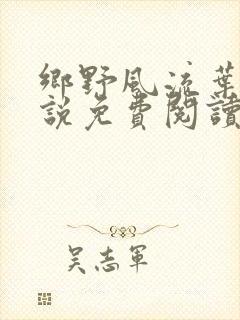 鄉野風流葉
說免費閱讀
吴志軍